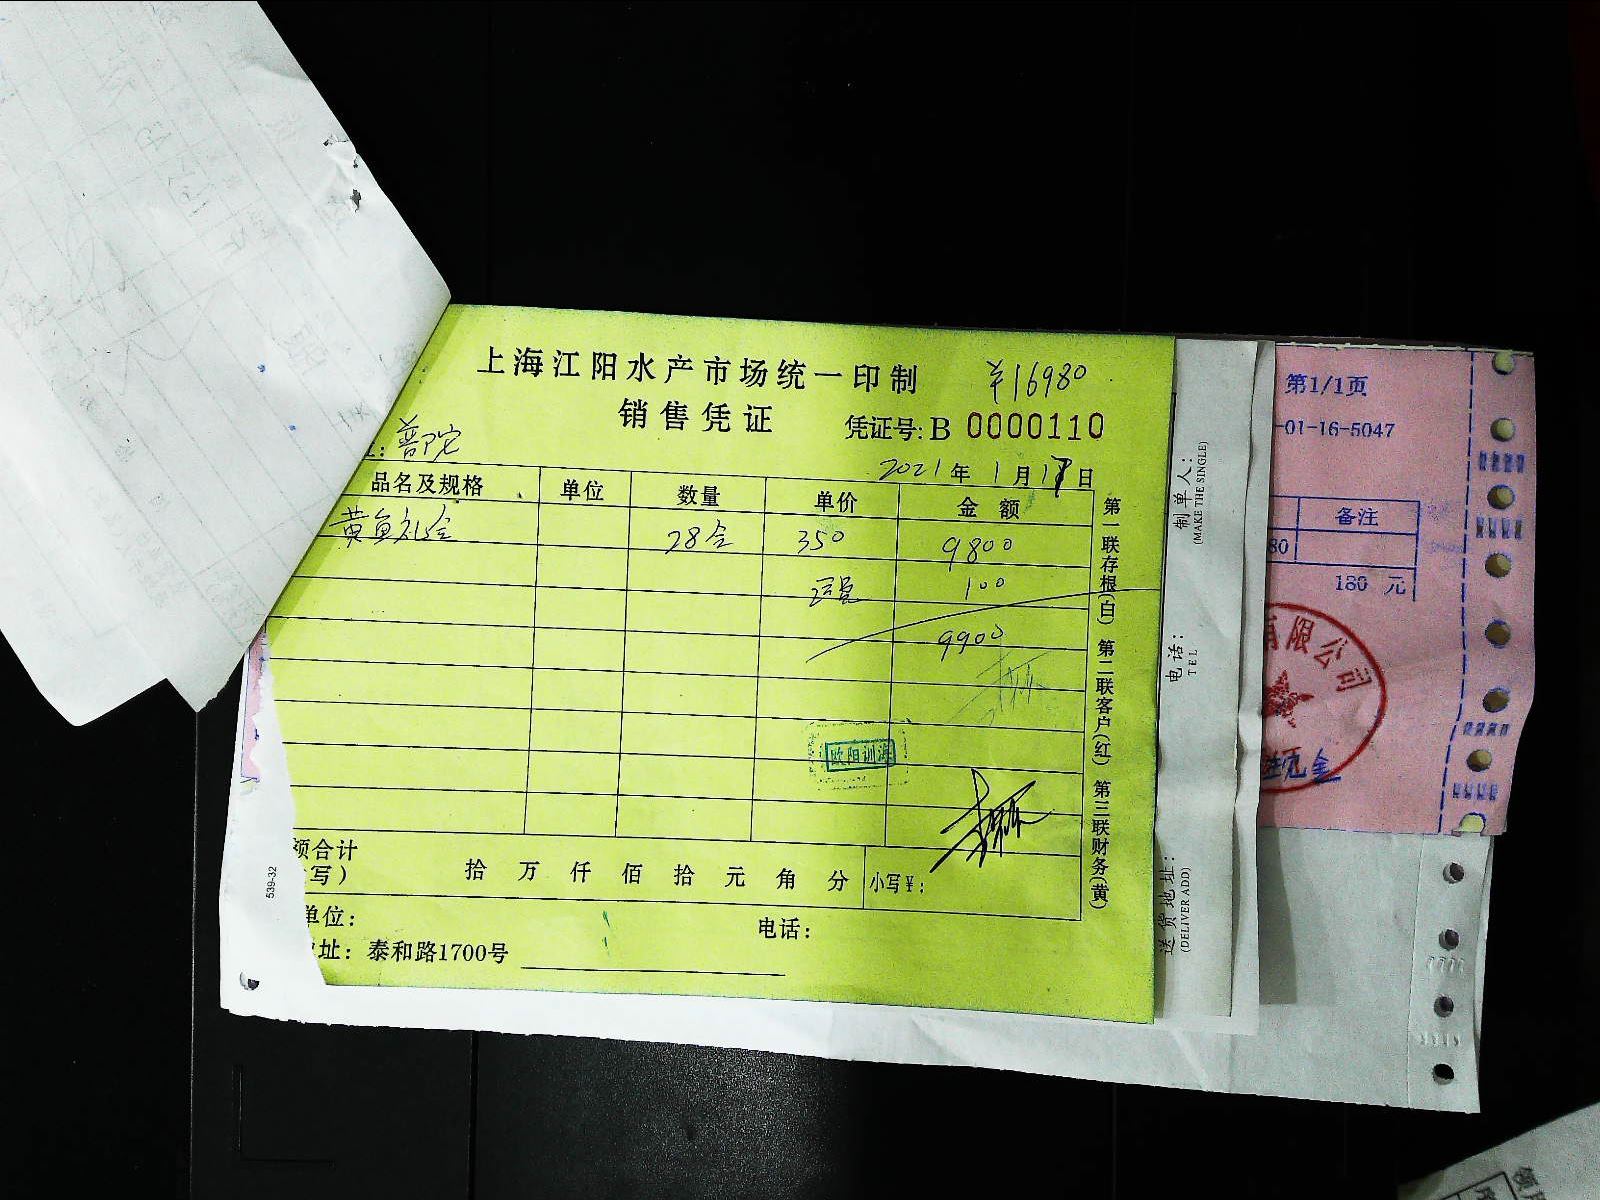 上海江阳水产市场统一印制
¥16980
销售凭证
凭证号: B 0000110
普陀
2021年1月17日
品名及规格 单位 数量 单价 金额
黄鱼礼盒 28盒 350 9800
100
9900
欧阳训海
额合计
写)
拾 万 仟 佰 拾 元 角 分 小写¥:
单位:
电话:
址: 泰和路1700号
第一联存根(白) 第二联客户(红) 第三联财务(黄)
539-32
制单人:
(MAKE THE SINGLE)
电话:
TEL
送货地址:
(DELIVER ADD)
第1/1页
-01-16-5047
备注
80
180 元
有限公司